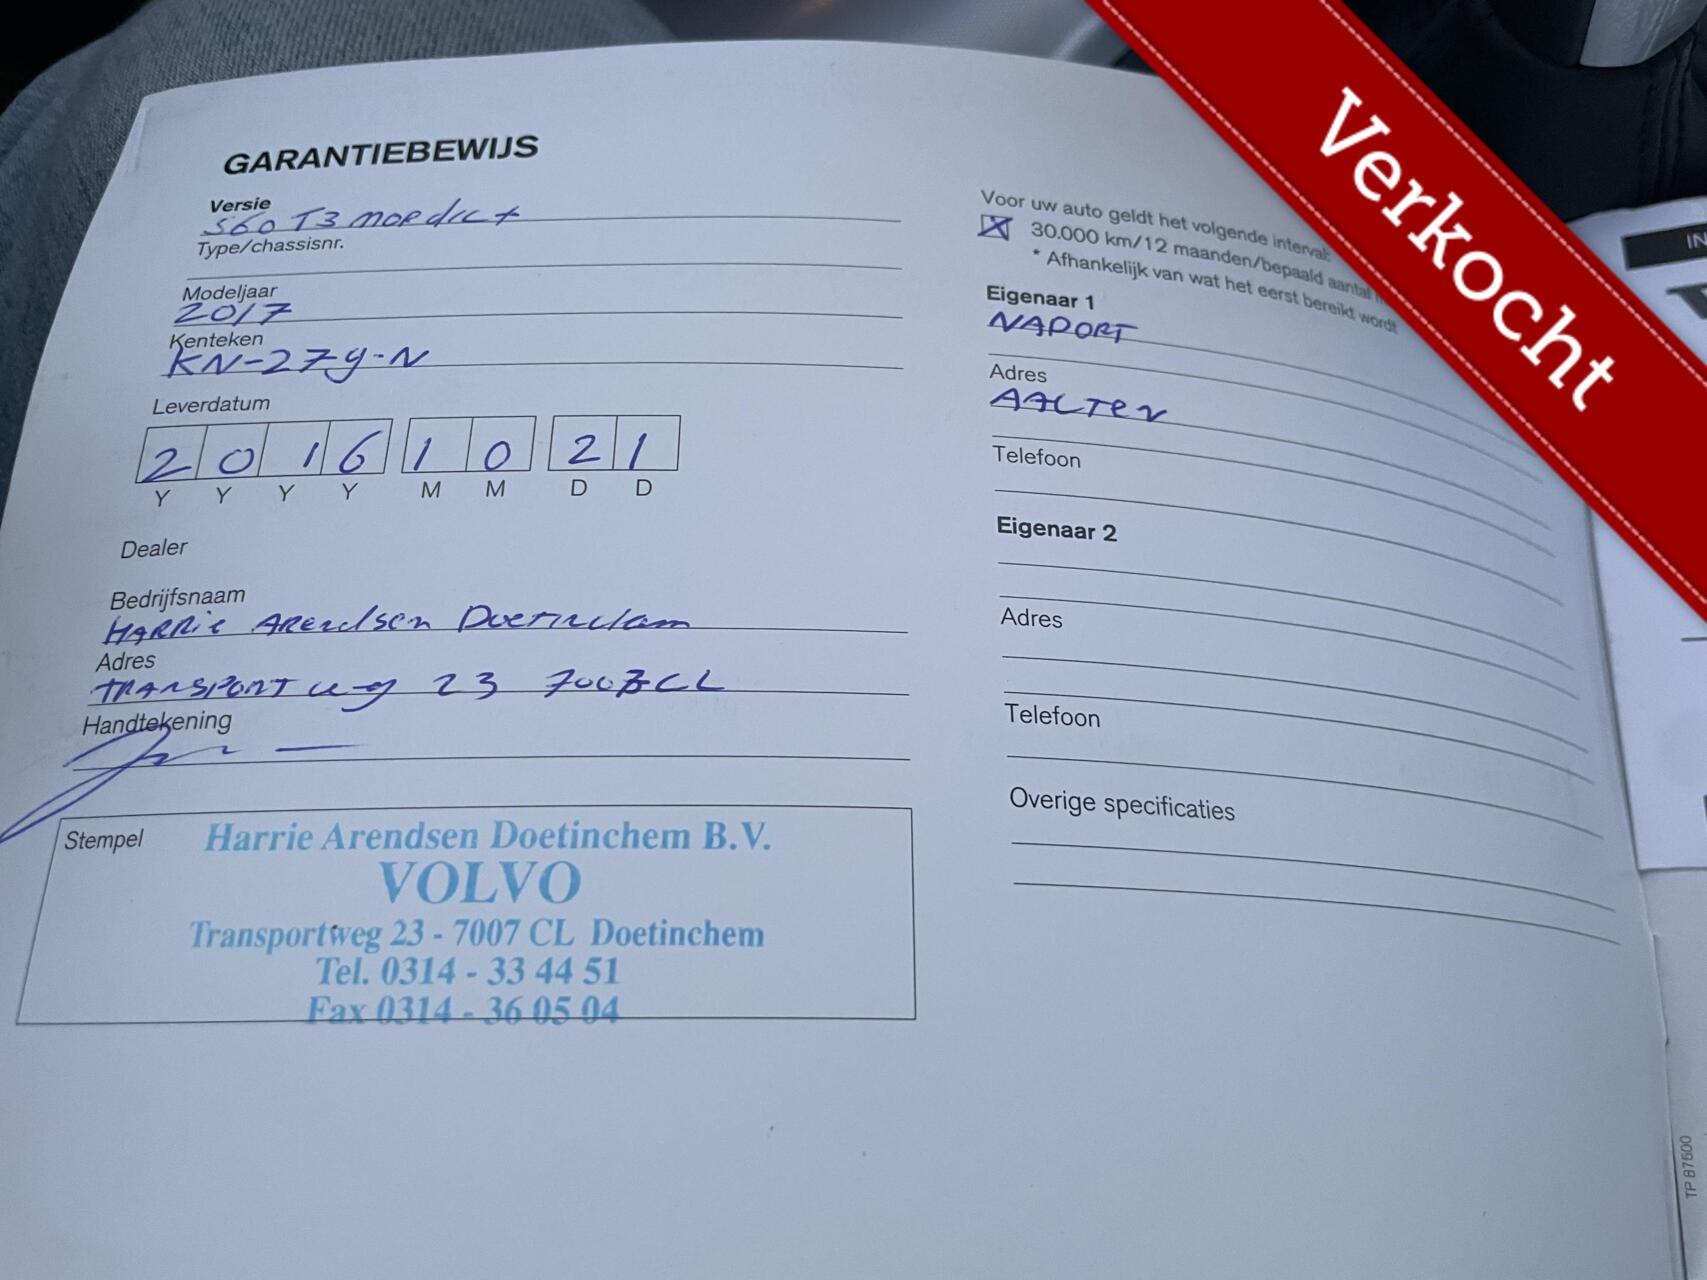 GARANTIEBEWIJS
Versie
S60 T3 NORdic +
Type/chassisnr.
Modeljaar
2017
Kenteken
KN-279-N
Leverdatum
2 0 1 6 1 0 2 1
Y Y Y Y M M D D
Dealer
Bedrijfsnaam
HARRie ARendsen Doetinchem
Adres
TRANSPORTweg 23 7007CL
Handtekening
Stempel
Harrie Arendsen Doetinchem B.V.
VOLVO
Transportweg 23 - 7007 CL Doetinchem
Tel. 0314 - 33 44 51
Fax 0314 - 36 05 04
Voor uw auto geldt het volgende interval:
30.000 km/12 maanden/bepaald aantal
* Afhankelijk van wat het eerst bereikt wordt
Eigenaar 1
NAPORT
Adres
AALTEN
Telefoon
Eigenaar 2
Adres
Telefoon
Overige specificaties
Verkocht
IN
TP 87600